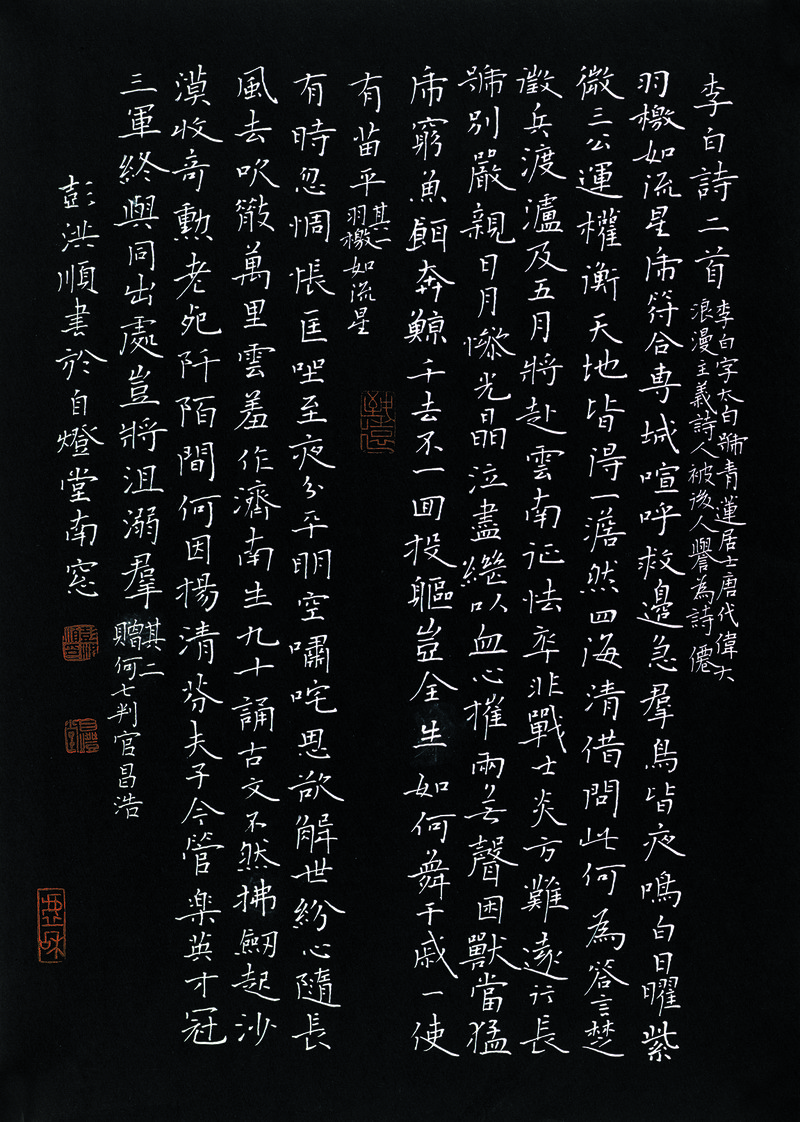 李白詩二首
李白字太白號青蓮居士唐代偉大
浪漫主義詩人被後人譽為詩僊
羽檄如流星虎符合専城喧呼救邊急羣鳥皆夜鳴白日曜紫
微三公運權衡天地皆得一澹然四海清借問此何為答言楚
徵兵渡瀘及五月將赴雲南征怯卒非戰士炎方難遠行長
號別嚴親日月慘光晶泣盡繼以血心摧兩無聲困獸當猛
虎窮魚餌奔鯨千去不一回投軀豈全生如何舞干戚一使
有苗平
其一
羽檄如流星
有時忽惆悵匡坐至夜分平明空嘯咤思欲解世紛心隨長
風去吹散萬里雲羞作濟南生九十誦古文不然拂劒起沙
漠收奇勲老死阡陌間何因揚清芬夫子今管樂英才冠
三軍終與同出處豈將沮溺羣
其二
贈何七判官昌浩
彭洪順書於自燈堂南窓